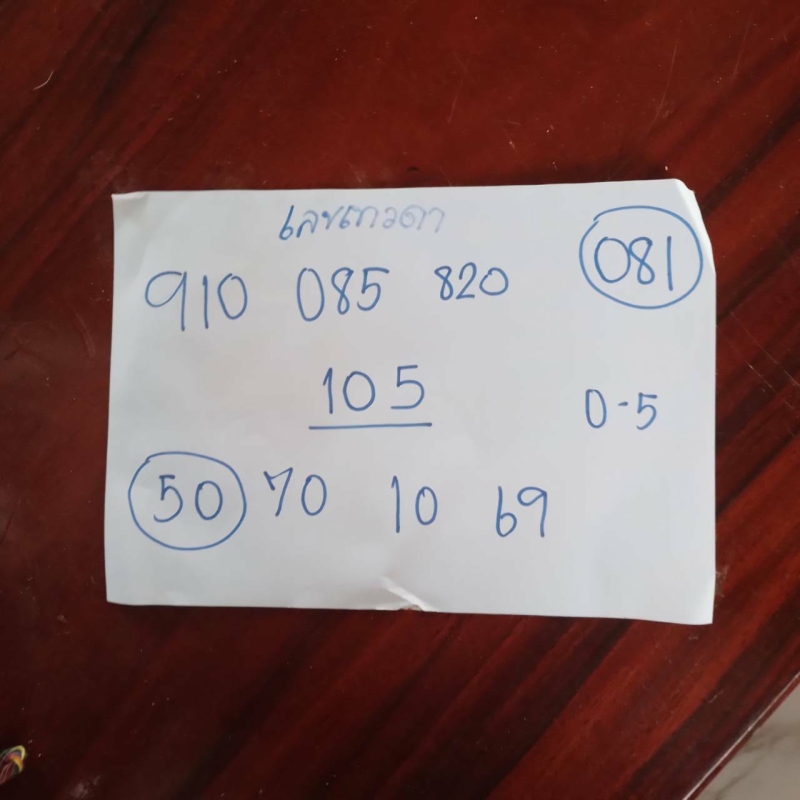 เลขเทวดา
910 085 820 081
105
0-5
50 70 10 69